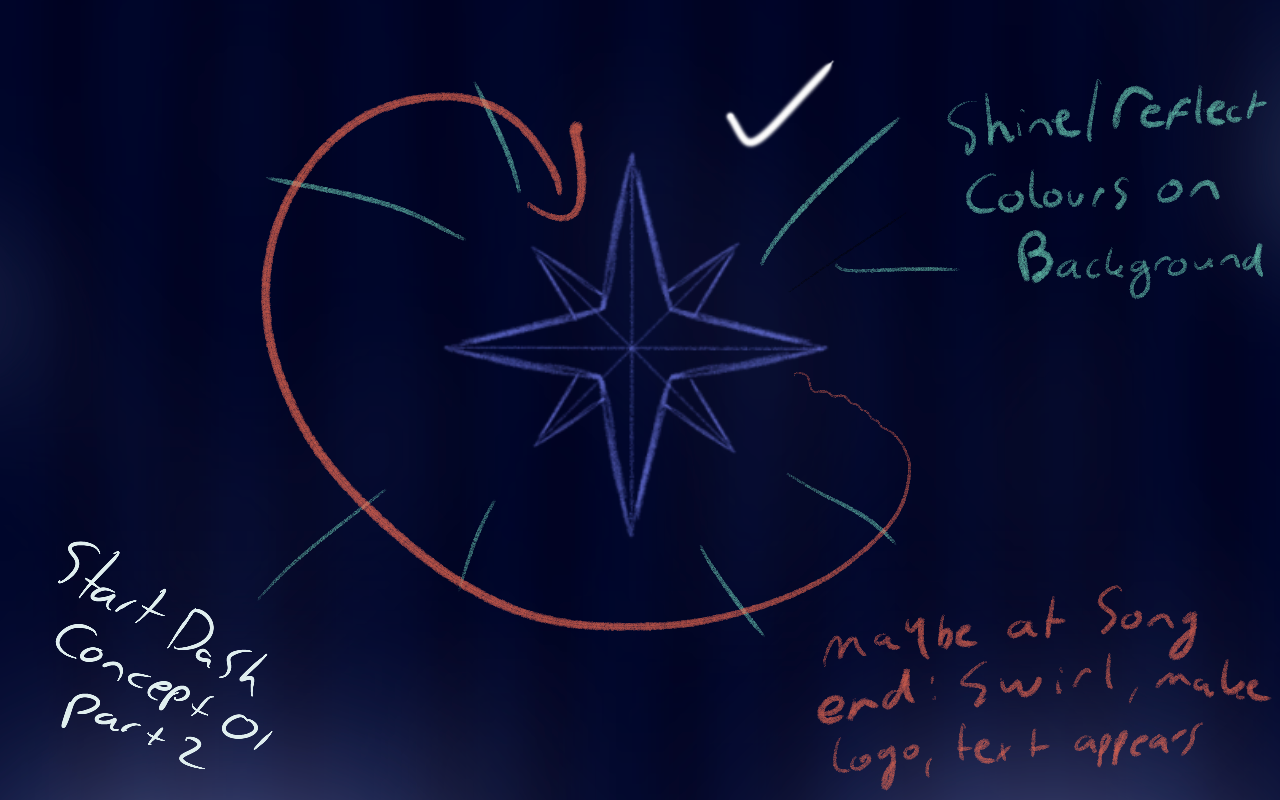 Shine/reflect
Colours on
Background
Start Dash
Concept 01
Part 2
maybe at song
end: Swirl, make
logo, text appears